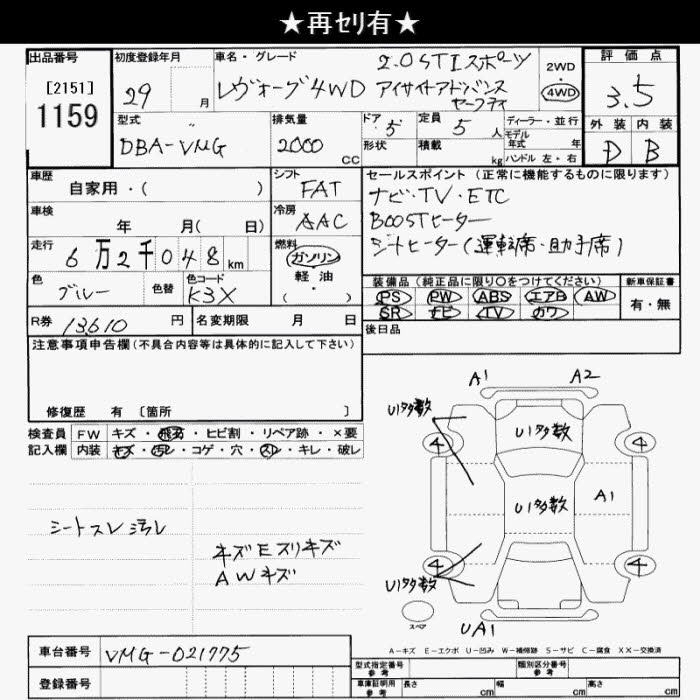 ★再ｾﾘ有★
出品番号
[2151]
1159
初度登録年月
29 月
車名・グレード
レヴォーグ4WD
2.0STIスポーツ
アイサイトアドバンス
セーフティ
2WD
・
4WD
評価点
3.5
外装 内装
D B
型式
DBA-VMG
排気量
2000
CC
ドア
5
形状
定員
5 人
積載
kg
ディーラー・並行
モデル
年式 年
ハンドル 左・右
車歴
自家用・( )
シフト
FAT
車検
年 月( 日)
冷房
AAC
走行
6万2千048km
燃料
ガソリン
軽油
・
( )
色
ブルー
色替
色コード
K3X
R券 13610 円
名変期限 月 日
セールスポイント (正常に機能するものに限ります)
ナビ・TV・ETC
BOOSTヒーター
シートヒーター(運転席・助手席)
装備品 (純正品に限り○をつけてください)
PS PW ABS エアB AW
SR ナビ TV カワ
新車保証書
有・無
後日品
注意事項申告欄(不具合内容等は具体的に記入して下さい)
修復歴 有 [箇所 ]
検査員
記入欄
FW キズ・飛石・ヒビ割・リペア跡・×要
内装 キズ・汚レ・コゲ・穴・スレ・キレ・破レ
シートスレ汚レ
キズEスリキズ
AWキズ
A1 A2
U1多数
U1多数
4 4
U1多数
A1
4 4
U1多数
スペア
UA1
A-キズ E-エクボ U-凹み W-補修跡 S-サビ C-腐食 XX-交換済
車台番号
VMG-021775
登録番号
型式指定番号
参考
類別区分番号
参考
車庫証明用
参考
長さ cm
幅 cm
高さ cm